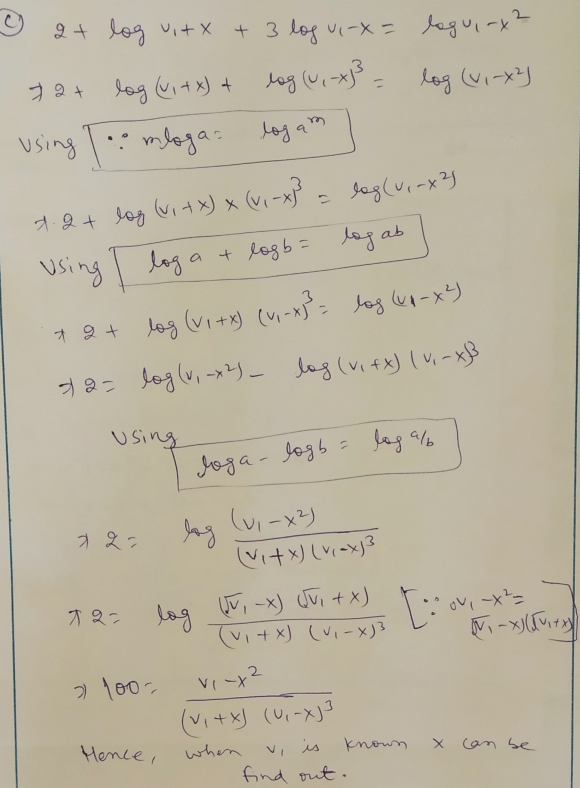 (c) 2 + log v₁+x + 3 log v₁-x = log v₁-x²
⇒ 2 + log (v₁+x) + log (v₁-x)³ = log (v₁-x²)
Using ∵ m log a = log aᵐ
⇒ 2 + log (v₁+x) × (v₁-x)³ = log (v₁-x²)
Using log a + log b = log ab
⇒ 2 + log (v₁+x) (v₁-x)³ = log (v₁-x²)
⇒ 2 = log (v₁-x²) - log (v₁+x) (v₁-x)³
Using
log a - log b = log a/b
⇒ 2 = log (v₁-x²) / (v₁+x) (v₁-x)³
⇒ 2 = log (√v₁-x) (√v₁+x) / (v₁+x) (v₁-x)³ [∵ v₁-x² = (√v₁-x)(√v₁+x)]
⇒ 100 = v₁-x² / (v₁+x) (v₁-x)³
Hence, when v₁ is known x can be
find out.